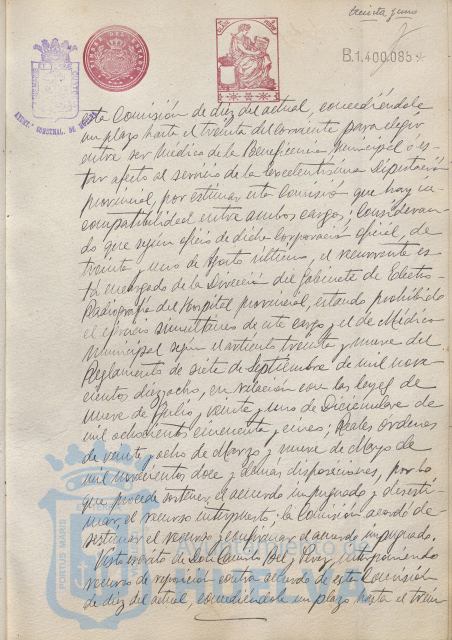 treinta y uno
B.1.400.085*
ta Comisión de diez del actual, concediéndole
un plazo hasta el treinta del corriente para elegir
entre ser Médico de la Beneficencia municipal o es-
tar afecto al servicio de la Excelentísima Diputación
provincial, por estimar esta Comisión que hay in-
compatibilidad entre ambos cargos; Consideran-
do que según oficio de dicha Corporación oficial, de
treinta y uno de Agosto último, el recurrente es-
tá encargado de la Dirección del Gabinete de Electro-
Radiografía del Hospital provincial, estando prohibido
el ejercicio simultáneo de este cargo y el de Médico
municipal según el artículo treinta y nueve del
Reglamento de siete de Septiembre de mil nove-
cientos dieziocho, en relación con las leyes de
nueve de Julio y veinte y uno de Diciembre de
mil ochocientos cincuenta y cinco; Reales órdenes
de veinte y ocho de Marzo y nueve de Mayo de
mil novecientos doce y demas disposiciones, por lo
que procede sostener el acuerdo impugnado y desesti-
mar el recurso interpuesto; la Comisión acordó de-
sestimar el recurso y confirmar el acuerdo impugnado.
Visto escrito de Don y Pérez interponiendo
recurso de reposición contra acuerdo de esta Comisión
de diez del actual, concediéndole un plazo hasta el trein-
PORTUS MARIS
Ayuntamiento de
HUELVA